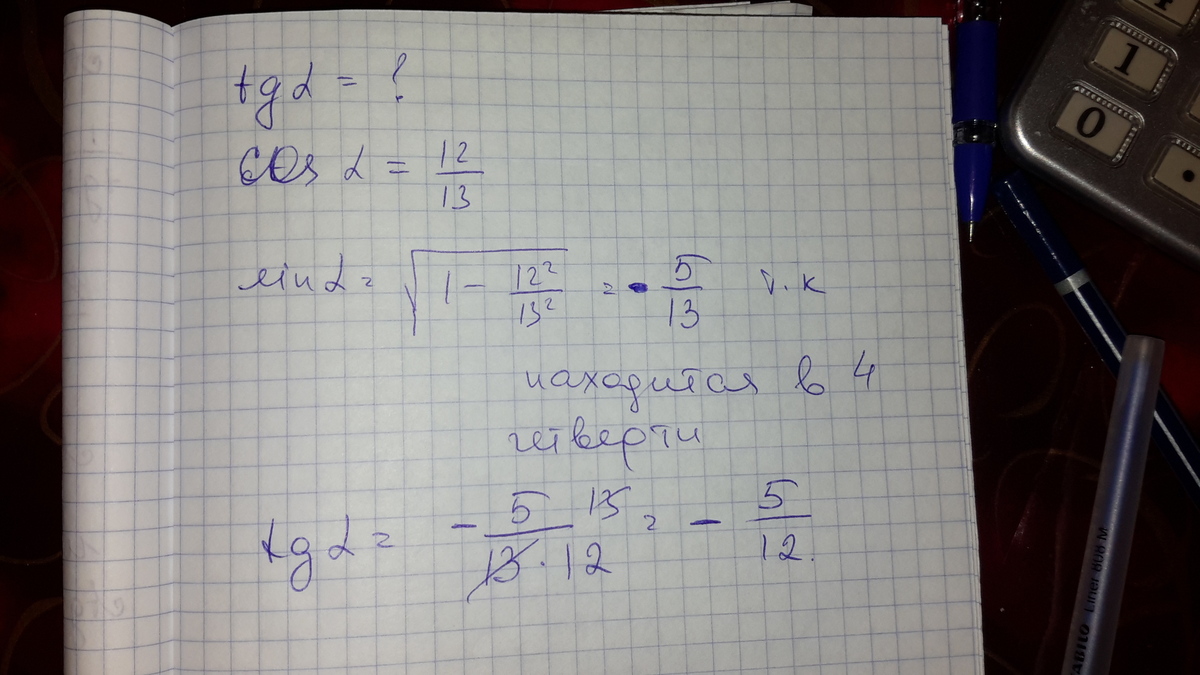 tg α = ?
cos α = 12/13
sin α = √(1 - 12²/13²) = - 5/13 т.к
находится в 4
четверти
tg α = - 5 13 / 13 · 12 = - 5/12.
1
0
.
Liner 808 M